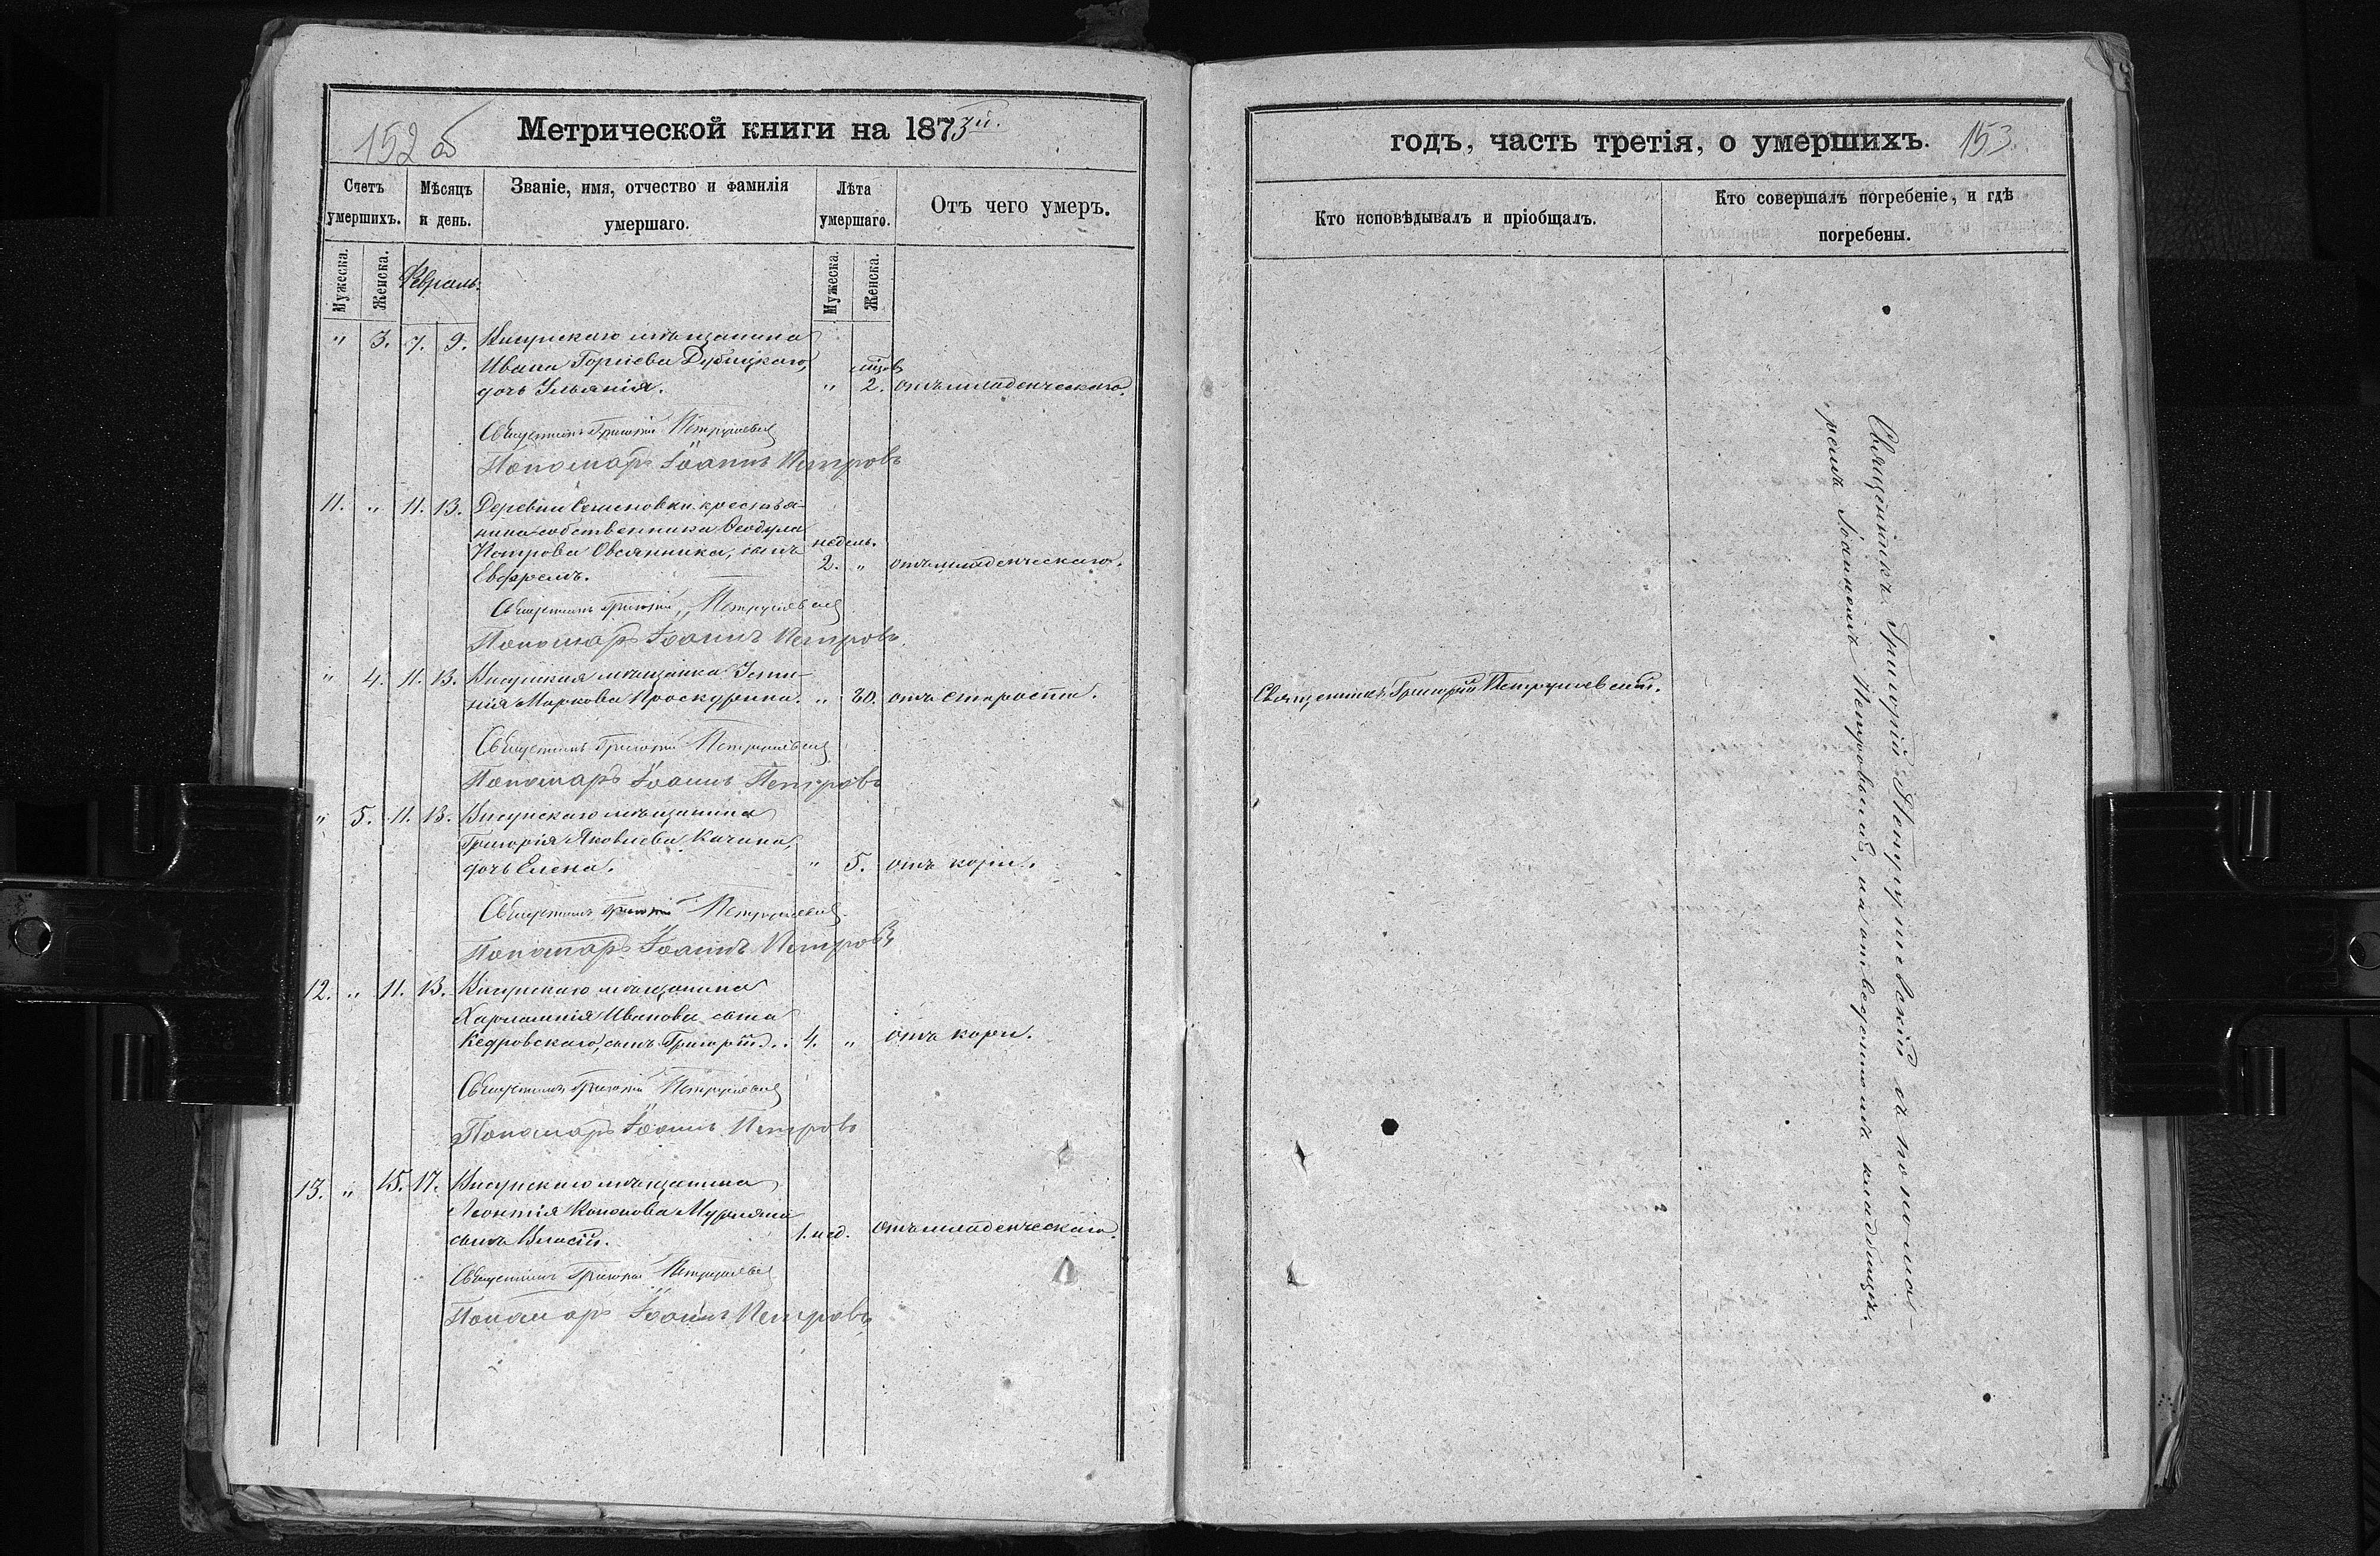 152 об
Метрической книги на 1873й.
Счетъ умершихъ.
Мѣсяцъ и день.
Званіе, имя, отчество и фамилія умершаго.
Лѣта умершаго.
Отъ чего умеръ.
Мужеска.
Женска.
Февраль.
Мужеска.
Женска.
" 3. 7. 9. Висунскаго мѣщанина
Ивана Гориева Дубицкаго, мѣсяц
дочь Ульянія. " 2. отъ младенческаго.
Священникъ Григорій Петрушевскій
Пономарь Іоаннъ Петровъ
11. " 11. 13. Деревни Семеновки крестья-
нина-собственника Ѳеодула
Петрова Овсянника, сынъ недель.
Евфремъ. 2. " отъ младенческаго.
Священникъ Григорій Петрушевскій
Пономарь Іоаннъ Петровъ
" 4. 11. 13. Висунская мѣщанка Усти-
нія Маркова Проскурина. " 80. отъ старости.
Священникъ Григорій Петрушевскій
Пономарь Іоаннъ Петровъ
" 5. 11. 13. Висунскаго мѣщанина
Григорія Яковлева Качана,
дочь Елена. " 5. отъ кори.
Священникъ Григорій Петрушевскій
Пономарь Іоаннъ Петровъ
12. " 11. 13. Висунскаго мѣщанина
Харлампія Иванова сына
Кедровскаго, сынъ Григорій. 4. " отъ кори.
Священникъ Григорій Петрушевскій
Пономарь Іоаннъ Петровъ
13. " 15. 17. Висунскаго мѣщанина
Леонтія Кононова
сынъ Власій. 1. нед. отъ младенческаго.
Священникъ Григорій Петрушевскій
Пономарь Іоаннъ Петровъ
годъ, часть третія, о умершихъ.
153
Кто исповѣдывалъ и пріобщалъ.
Кто совершалъ погребеніе, и гдѣ погребены.
Священникъ Григорій Петрушевскій.
Священникъ Григорій Петрушевскій съ понома-
ремъ Іоанномъ Петровымъ, на отведенномъ кладбищѣ.